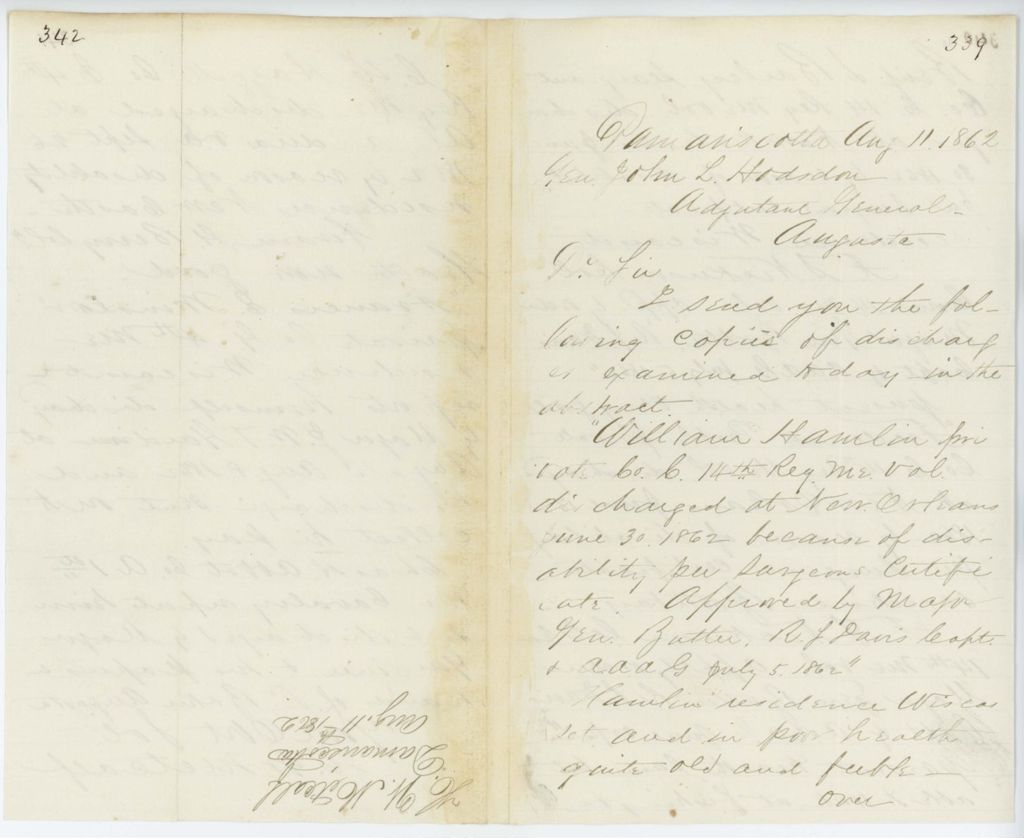 342
339
Damariscotta Aug 11. 1862
Gen. John L. Hodsdon
Adjutant General
Augusta
Dr. Sir
I send you the fol-
lowing copies of discharg
es examined to day in the
abstract.
"William Hamlin pri
vate Co. C. 14th Reg. Me. Vol.
discharged at New Orleans
June 30. 1862 because of dis-
ability per Surgeons Certifi
cate. Approved by Major
Gen. Butler, R. S. Davis Capt.
& A A A G July 5. 1862"
Hamlin residence Wiscas
set and in poor health
quite old and feeble—
over
H.
Damariscotta
Aug. 11th 1862